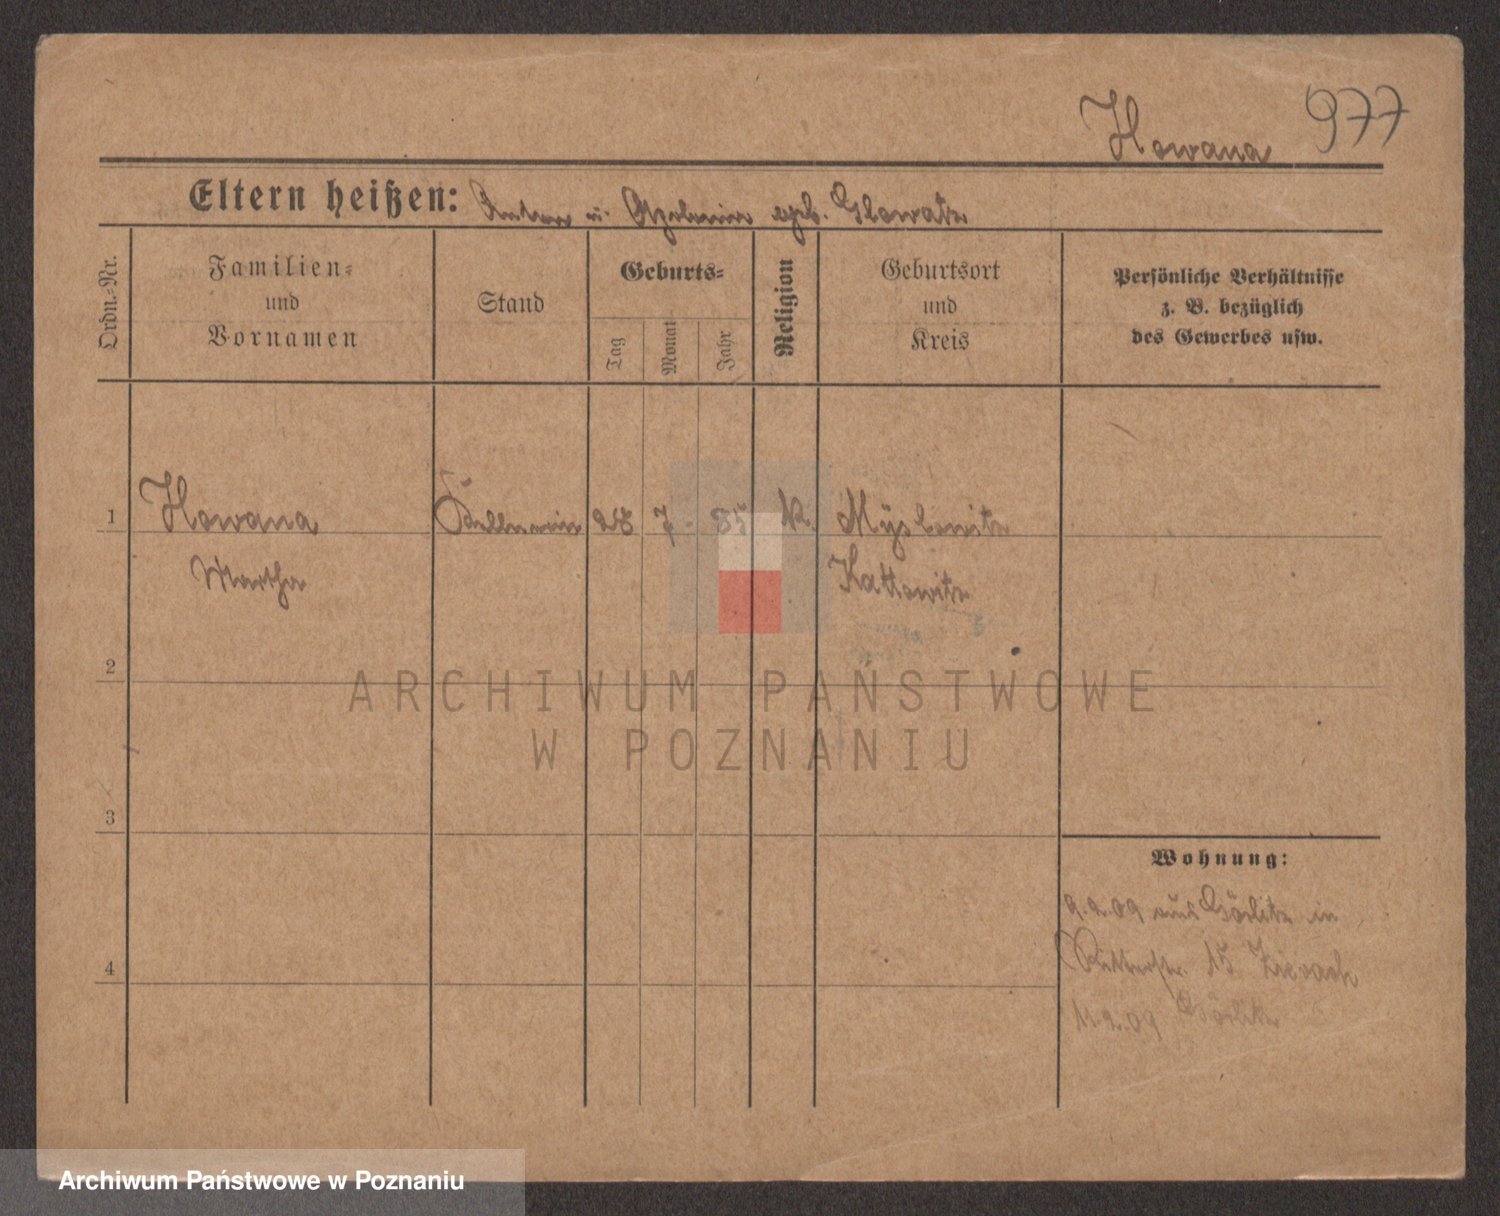 Howana 977
Eltern heißen: Anton u. Apolonia geb. Glowatz
Ordn.-Nr.
Familien-
und
Vornamen
Stand
Geburts-
Tag
Monat
Jahr
Religion
Geburtsort
und
Kreis
Persönliche Verhältnisse
z. B. bezüglich
des Gewerbes usw.
1 Howana Kellnerin 28 7. 85 k. Myslowitz
Martha Kattowitz
2
3
4
Wohnung:
9.2.09 aus Görlitz in
Ritterstr. 15
11.2.09 Görlitz
ARCHIWUM PAŃSTWOWE
W POZNANIU
Archiwum Państwowe w Poznaniu